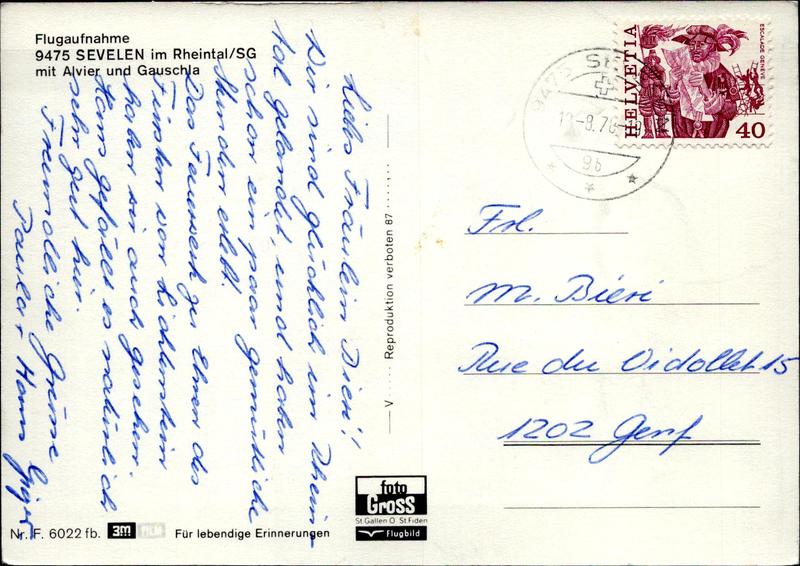 Flugaufnahme
9475 SEVELEN im Rheintal/SG
mit Alvier und Gauschla
Liebes Fräulein Bieri!
Wir sind glücklich im Rhein-
tal gelandet, und haben
schon ein paar gemütliche
Stunden erlebt.
Das Feuerwerk zu Ehren des
Fürsten von Lichtenstein
haben wir auch gesehen.
Hans gefällt es natürlich
sehr gut hier.
Freundliche Grüsse
Paula + Hans
V ..... Reproduktion verboten 87 .......
HELVETIA
ESCALADE GENÈVE
40
9475
9b
Frl.
M. Bieri
Rue du Vidollet 15
1202 Genf
foto
GROSS
St.Gallen O St.Fiden
Flugbild
Nr. F. 6022 fb. 3M FILM Für lebendige Erinnerungen